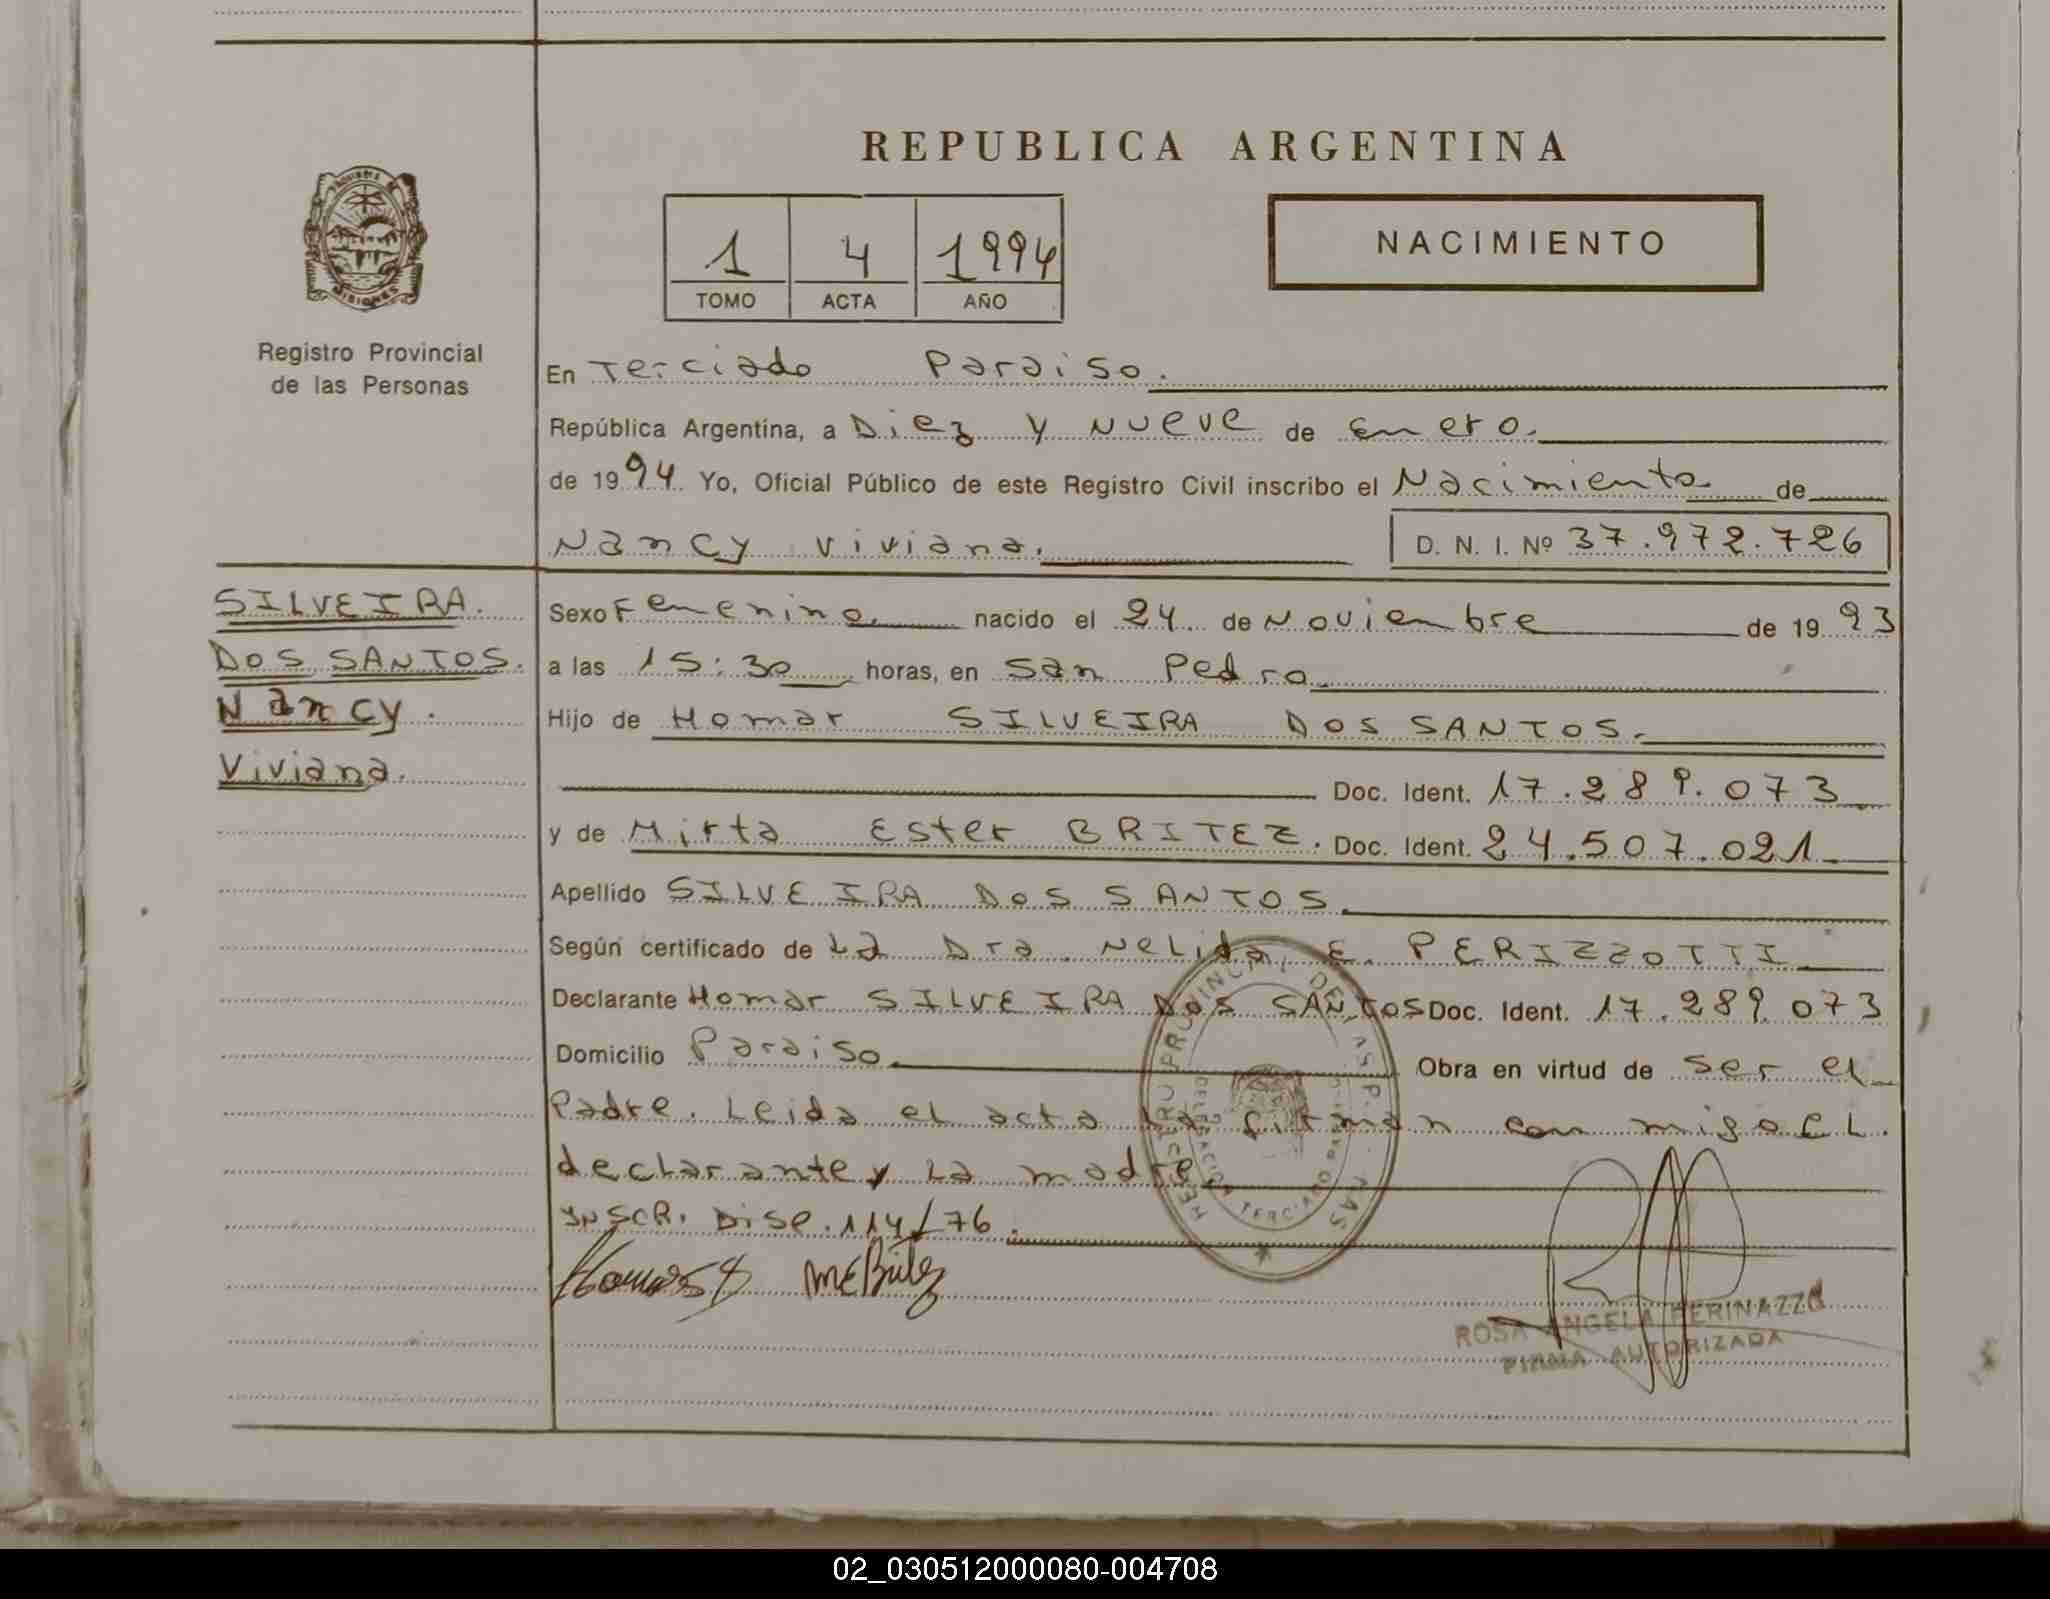 REPUBLICA ARGENTINA
PROVINCIA DE
MISIONES
Registro Provincial
de las Personas
1 4 1994
TOMO ACTA AÑO
NACIMIENTO
En Terciado Paraiso.
República Argentina, a Diez y nueve de Enero.
de 1994. Yo, Oficial Público de este Registro Civil inscribo el Nacimiento de
Nancy Viviana. D. N. I. Nº 37.972.726
SILVEIRA.
DOS SANTOS.
Nancy.
Viviana.
Sexo Femenino. nacido el 24. de Noviembre de 1993
a las 15:30 horas, en San Pedro.
Hijo de Homar SILVEIRA DOS SANTOS.
Doc. Ident. 17.289.073
y de Mirta Ester BRITEZ. Doc. Ident. 24.507.021.
Apellido SILVEIRA DOS SANTOS.
Según certificado de La Dra. NeLida E. PERIZZOTTI
Declarante Homar SILVEIRA DOS SANTOS Doc. Ident. 17.289.073
Domicilio Paraiso. Obra en virtud de ser el
Padre. Leida el acta La firman con migo EL.
declarante y La madre
INSCR. Disp. 114/76.
MEBritez
ROSA ANGELA PERINAZZO
FIRMA AUTORIZADA
02_030512000080-004708